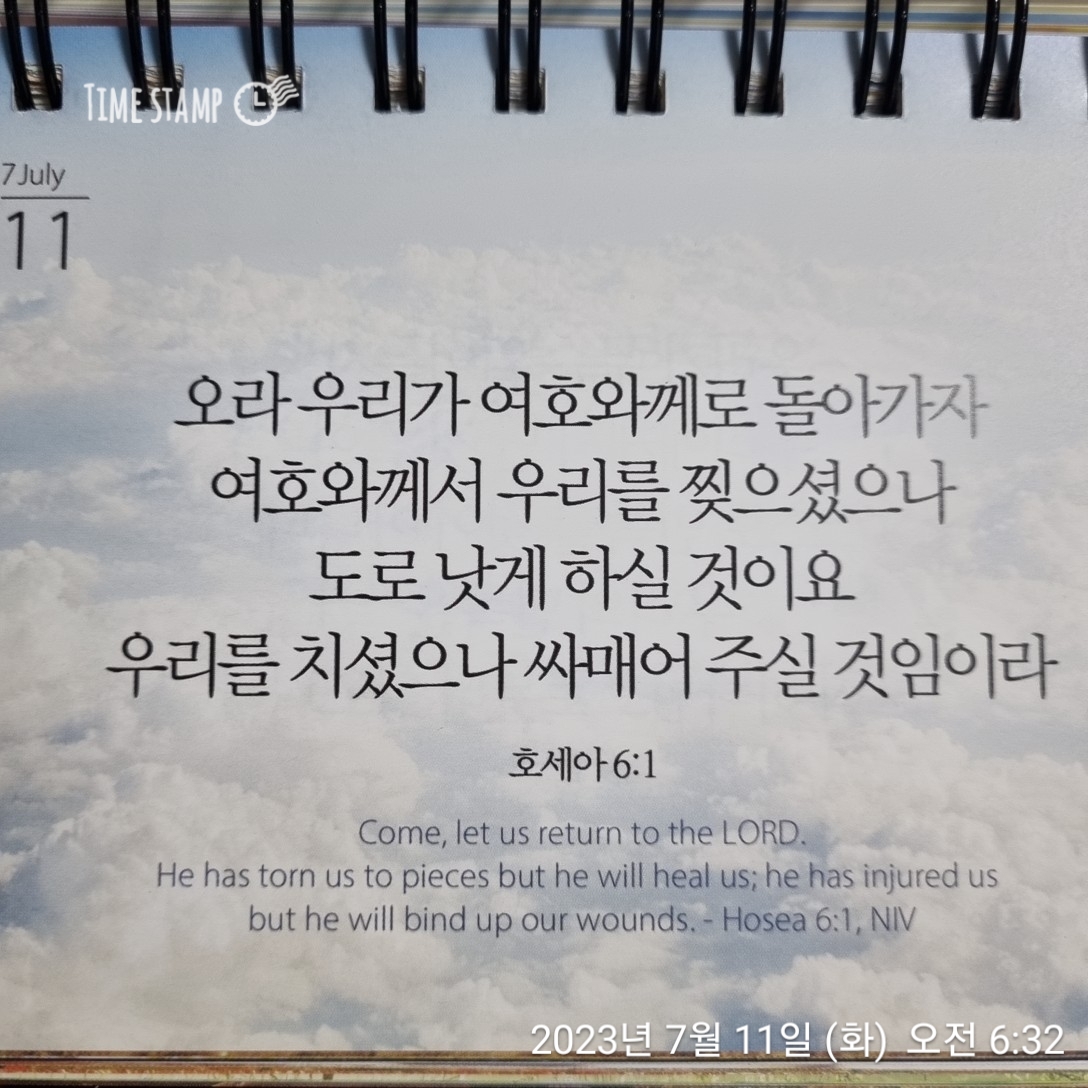 TIME STAMP
7 July
11
오라 우리가 여호와께로 돌아가자
여호와께서 우리를 찢으셨으나
도로 낫게 하실 것이요
우리를 치셨으나 싸매어 주실 것임이라
호세아 6:1
Come, let us return to the LORD.
He has torn us to pieces but he will heal us; he has injured us
but he will bind up our wounds. - Hosea 6:1, NIV
2023년 7월 11일 (화) 오전 6:32